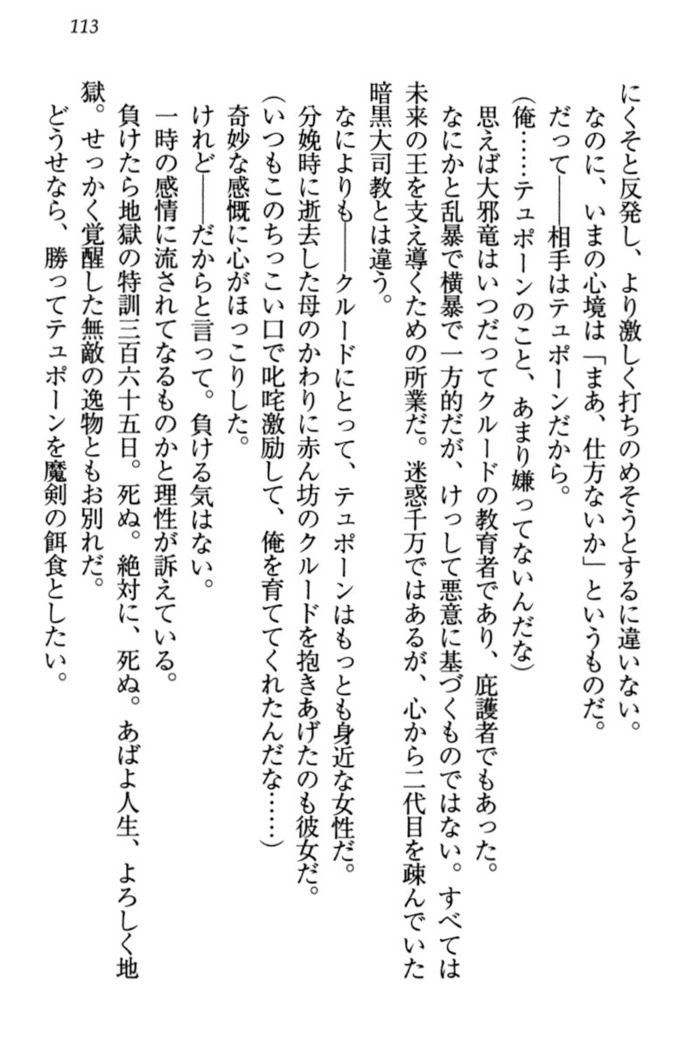 113
にくそと反発し、より激しく打ちのめそうとするに違いない。
なのに、いまの心境は「まあ、仕方ないか」というものだ。
だって――相手はテュポーンだから。
(俺……テュポーンのこと、あまり嫌ってないんだな)
思えば大邪竜はいつだってクルードの教育者であり、庇護者でもあった。
なにかと乱暴で横暴で一方的だが、けっして悪意に基づくものではない。すべては
未来の王を支え導くための所業だ。迷惑千万ではあるが、心から二代目を疎んでいた
暗黒大司教とは違う。
なによりも――クルードにとって、テュポーンはもっとも身近な女性だ。
分娩時に逝去した母のかわりに赤ん坊のクルードを抱きあげたのも彼女だ。
(いつもこのちっこい口で叱咤激励して、俺を育ててくれたんだな……)
奇妙な感慨に心がほっこりした。
けれど――だからと言って。負ける気はない。
一時の感情に流されてなるものかと理性が訴えている。
負けたら地獄の特訓三百六十五日。死ぬ。絶対に、死ぬ。あばよ人生、よろしく地
獄。せっかく覚醒した無敵の逸物ともお別れだ。
どうせなら、勝ってテュポーンを魔剣の餌食としたい。